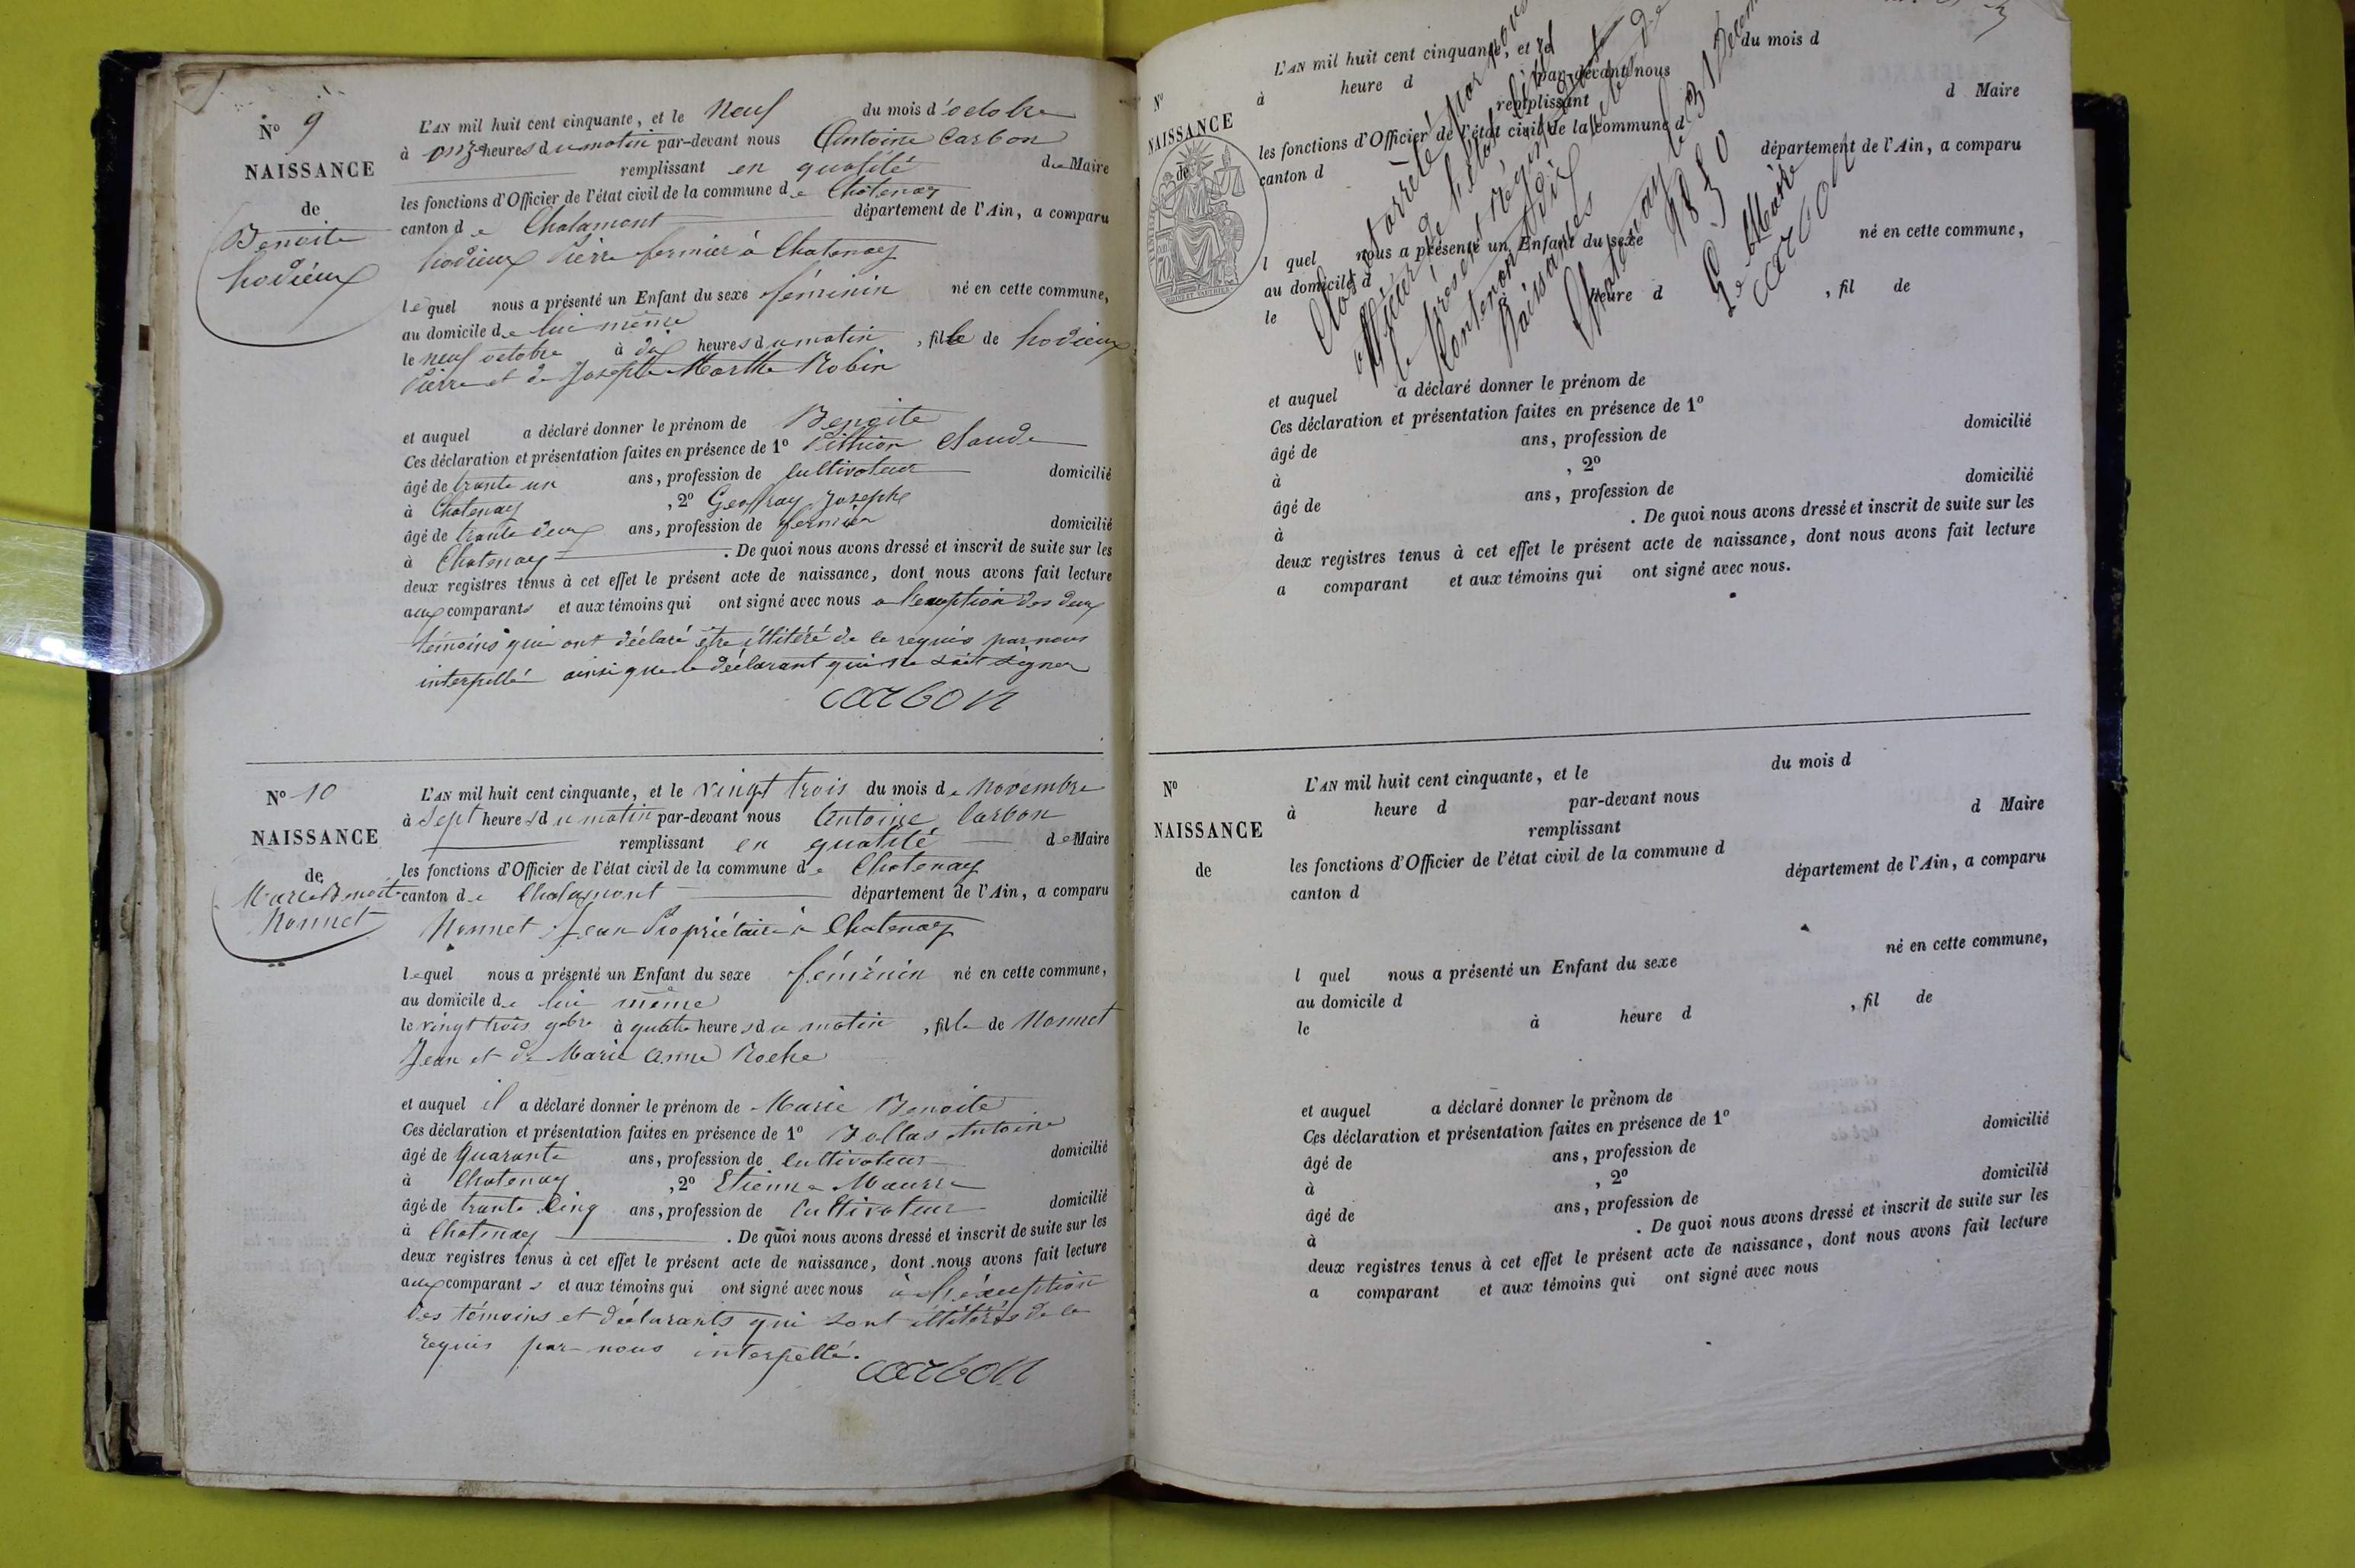 N° 9
NAISSANCE
de
Benoite
hodieux
L'AN mil huit cent cinquante, et le neuf du mois d'octobre
à onze heures du matin par-devant nous Antoine Carbon
remplissant en qualité de Maire
les fonctions d'Officier de l'état civil de la commune de Chatenay
canton de Chalamont département de l'Ain, a comparu
hodieux Pierre fermier à Chatenay
lequel nous a présenté un Enfant du sexe féminin né en cette commune,
au domicile de lui même
le neuf octobre à dix heures du matin, fille de hodieux
Pierre et de Josephte Marthe Robin
et auquel a déclaré donner le prénom de Benoite
Ces déclaration et présentation faites en présence de 1° Claude
âgé de trente un ans, profession de cultivateur domicilié
à Chatenay, 2° Geoffray Josephe
âgé de trente deux ans, profession de fermier domicilié
à Chatenay. De quoi nous avons dressé et inscrit de suite sur les
deux registres tenus à cet effet le présent acte de naissance, dont nous avons fait lecture
aux comparants et aux témoins qui ont signé avec nous a l'exeption des deux
témoins qui ont déclaré être illitéré de ce requis par nous
interpellé ainsi que le déclarant qui ne sait signer
carbon
N° 10
NAISSANCE
de
Marie Benoite
Monnet
L'AN mil huit cent cinquante, et le vingt trois du mois de Novembre
à sept heures du matin par-devant nous Antoine Carbon
remplissant en qualité de Maire
les fonctions d'Officier de l'état civil de la commune de Chatenay
canton de Chalamont département de l'Ain, a comparu
Monnet Jean Propriétaire à Chatenay
lequel nous a présenté un Enfant du sexe féminin né en cette commune,
au domicile de lui même
le vingt trois 9bre à quatre heures du matin, fille de Monnet
Jean et de Marie Anne Roche
et auquel il a déclaré donner le prénom de Marie Benoite
Ces déclaration et présentation faites en présence de 1° Antoine
âgé de quarante ans, profession de cultivateur domicilié
à Chatenay, 2° Etienne
âgé de trente cinq ans, profession de cultivateur domicilié
à Chatenay. De quoi nous avons dressé et inscrit de suite sur les
deux registres tenus à cet effet le présent acte de naissance, dont nous avons fait lecture
aux comparants et aux témoins qui ont signé avec nous à l'éxeuption
des témoins et déclarants qui sont illitérés de ce
requis par nous interpellé.
carbon
N°
NAISSANCE
de
L'AN mil huit cent cinquante, et le du mois d
à heure d par-devant nous
remplissant d Maire
les fonctions d'Officier de l'état civil de la commune d
canton d département de l'Ain, a comparu
l quel nous a présenté un Enfant du sexe né en cette commune,
au domicile d
le heure d, fil de
Clos et arrêté par nous
officier de l'état civil
le présent régistre
Contenant dix actes de
naissances
Chatenay le 31 Décem
1850
Le Maire
carbon
et auquel a déclaré donner le prénom de
Ces déclaration et présentation faites en présence de 1°
âgé de ans, profession de domicilié
à , 2°
âgé de ans, profession de domicilié
à . De quoi nous avons dressé et inscrit de suite sur les
deux registres tenus à cet effet le présent acte de naissance, dont nous avons fait lecture
a comparant et aux témoins qui ont signé avec nous.
N°
NAISSANCE
de
L'AN mil huit cent cinquante, et le du mois d
à heure d par-devant nous
remplissant d Maire
les fonctions d'Officier de l'état civil de la commune d
canton d département de l'Ain, a comparu
l quel nous a présenté un Enfant du sexe né en cette commune,
au domicile d
le à heure d , fil de
et auquel a déclaré donner le prénom de
Ces déclaration et présentation faites en présence de 1°
âgé de ans, profession de domicilié
à , 2°
âgé de ans, profession de domicilié
à . De quoi nous avons dressé et inscrit de suite sur les
deux registres tenus à cet effet le présent acte de naissance, dont nous avons fait lecture
a comparant et aux témoins qui ont signé avec nous